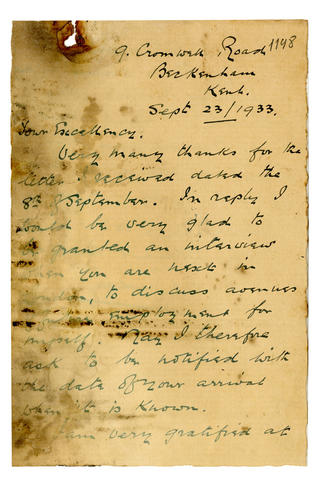 9. Cromwell Road 1148
Beckenham
Kent.
Sept 23/1933.
Your Excellency.
Very many thanks for the
letter received dated the
8th September. In reply I
would be very glad to
be granted an interview
when you are next in
London, to discuss avenues
employment for
myself. May I therefore
ask to be notified with
the date of your arrival
when it is known.
I am very gratified at